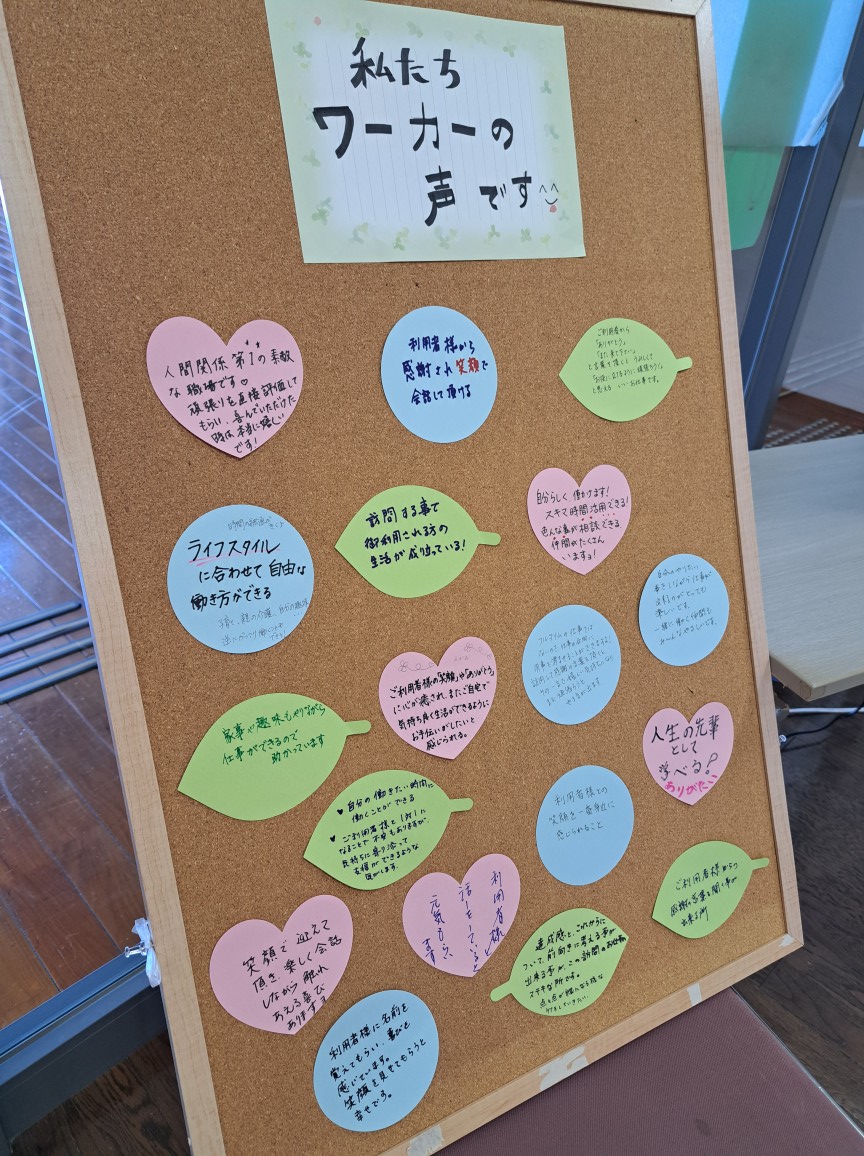 私たち
ワーカーの
声です^^
人間関係 第1の素敵
な職場です♡
頑張りを直接評価して
もらい、喜んでいただけた
時は、本当に嬉しい
です!
利用者様から
感謝され笑顔で
会話して頂ける
ご利用者から
「ありがとう」
「また来て下さい」
と言葉を頂くと うれしくて
と思える いいお仕事です。
ライフスタイル
に合わせて自由な
働き方ができる
訪問する事で
御利用される方の
生活が成り立っている!
自分らしく、働かけます!
スキマ時間活用できる!
色んな事が相談できる
仲間がたくさん
いますョ!
自分のやりたい
事をしながら仕事が
楽しいです。
一緒に働く仲間も
み〜んなやさしいです。
ご利用者様の「笑顔」や「ありがとう」
に心が癒され、またご自宅で
気持ち良く生活ができるように
お手伝いがしたいと
感じられる。
家事や趣味もやりながら
仕事ができるので
助かっています
人生の先輩
として
学べる!
ありがたい
♥自分の働きたい時間に
働くことができる
♥ご利用者様と1対1に
なることで不安もありますが、
気持ちに寄り添って
支援ができるような
気がします。
利用者様との
笑顔を一番身近に
感じられること
ご利用者様からの
感謝の言葉を聞く事が
出来る所
利用者様と
元気もらい
笑顔で迎えて
頂き楽しく会話
しながら触れ
あえる喜び
ありますョ
達成感と、これからに
ついて前向きに考える事が
出来る事が、この訪問のお仕事の
ステキな所です。
利用者様に名前を
覚えてもらい、喜びを
感じています。
笑顔を見せてもらうと
幸せです。